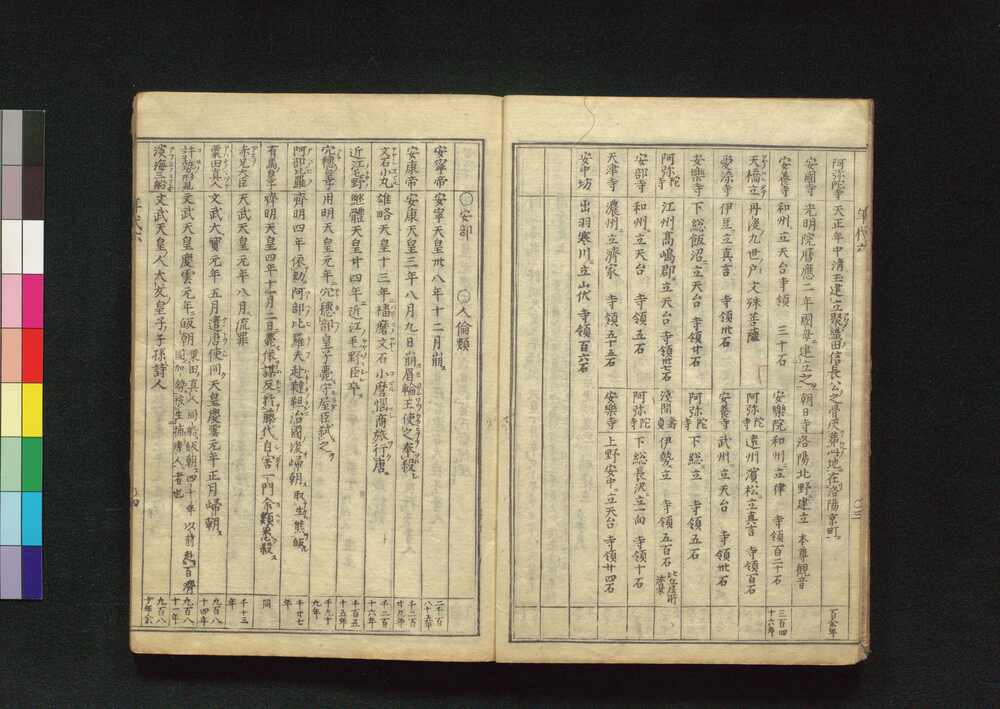 阿弥陀寺 天正年中清玉建立聚織田信長公之骨灰葬此地在洛陽京町 百余年
安國寺 光明院暦應二年國母建立之 朝日寺洛陽北野建立 本尊観音
安養寺 和州立天台寺領 三十石 安樂院 和州立律 寺領百二十石 三百四十六年
天橋立 丹後九世戸文殊菩薩 阿弥陀寺 遠州濱松立真言 寺領百石
伊豆立真言 寺領卅石 安養寺 武州立天台 寺領卅石
安樂寺 下総飯沼立天台 寺領廿石 阿弥陀寺 下総立 寺領五石
阿弥陀寺 江州高嶋郡立天台 寺領卅七石 伊勢立 寺領五百石
安部寺 和州立天台 寺領五石 阿弥陀寺 下総長沢立一向 寺領十石
天澤寺 濃州立済家 寺領五十五石 安樂寺 上野安中立天台 寺領廿四石
安中坊 出羽寒川立山伏 寺領百六石
〇安部 〇人倫類
安寧帝 安寧天皇卅八年十二月崩 二千二百八十五年
安康帝 安康天皇三年八月九日崩眉輪王使之奉殺 千二百廿九年
文石小丸 雄略天皇十三年播磨文石小麿悩商旅行虐 千二百十六年
近江毛野 継體天皇廿四年近江毛野臣卒 千百五十五年
穴穂皇子 用明天皇元年穴穂部皇子薨守屋臣弑之 千九十九年
阿部比羅 齊明四年依勅阿部比羅夫赴靺鞨治國後帰朝取生熊皈 千廿七年
有馬皇子 齊明天皇四年十一月二日薨依謀反行藤代自害一門余類悉殺 同
赤兄大臣 天武天皇元年八月流罪 千十三年
粟田真人 文武大寶元年五月遣唐使同天皇慶雲元年正月帰朝 九百八十四年
許勢形見 文武天皇慶雲元年皈朝 九百八十一年
淡海三船 文武天皇人大友皇子子孫詩人